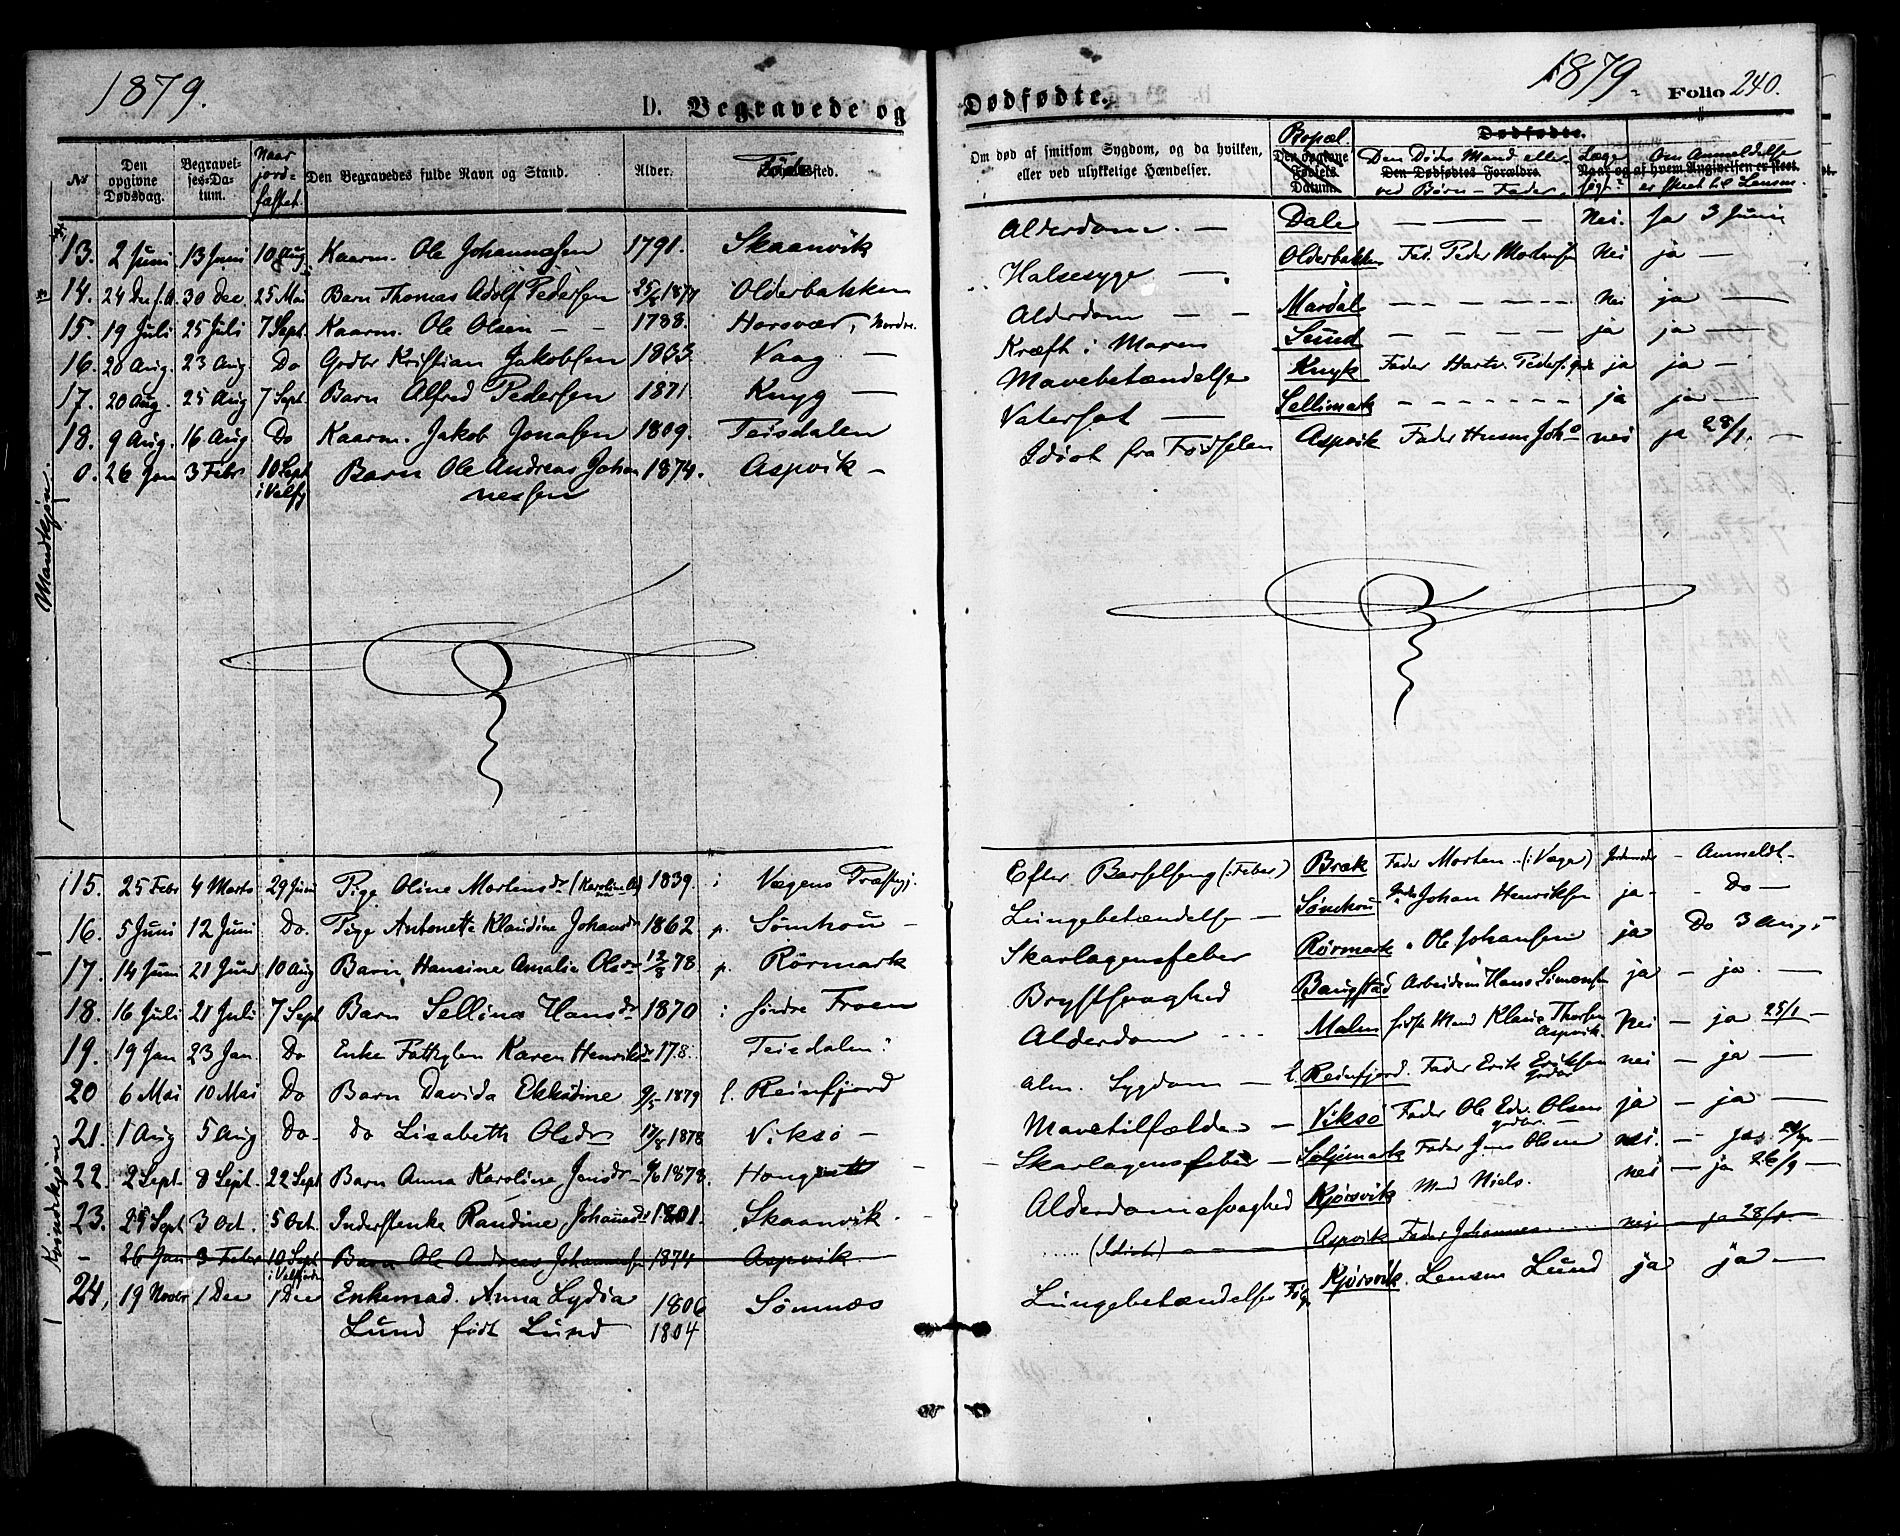 1879.
D. Begravede og
No
Den opgivne Dødsdag.
Begravelses-Datum.
Naar jordfæstet
Den Begravedes fulde Navn og Stand.
Alder.
Fødested.
Mandkjøn.
13. 2 Juni 13 Juni 10 Aug Kaarm. Ole Johannesen 1791. Skaanvik
14. 24 Dec f.A. 30 Dec 25 Mai Barn Thomas Adolf Pedersen 1877 Olderbakken
15. 19 Juli 25 Juli 7 Sept. Kaarm. Ole Olsen - - 1788. Horsvær, Nordre.
16. 20 Aug. 23 Aug. Do Grdbr Kristian Jakobsen 1833 Vaag -
17. 20 Aug. 25 Aug 7 Sept Barn Alfred Pedersen 1871. Knyg -
18. 9 Aug. 16 Aug Do Kaarm. Jakob Jonasen 1809. Teisdalen
0. 26 Jan 3 Febr 10 Sept i Velfj Barn Ole Andreas Johan 1874. Aspvik -
nessen
Kvindekjøn
15. 25 Febr 4 Marts 29 Juni Pige Oline Mortensdr 1839. i Vegens Præstegj.
16. 5 Juni 12 Juni Do. Pige Antonette Klaudine Johansdr 1862 p. Sömhou -
17. 14 Juni 21 Juni 10 Aug Barn Hansine Amalie Olsdr 13/8 78 p. Rörmark
18. 16 Juli 21 Juli 7 Sept Barn Sellina Hansdr 1870 i söndre Froen
19. 19 Jan 23 Jan. Do Enke Fattiglem Karen Henriksdr 178. Teisdalen
20 6 Mai 10 Mai Do Barn Davida Ekkidine 1879 l. Reinfjord
21. 1 Aug 5 Aug Do- do Lisabeth Olsdr 17/8 1878 Viksö -
22. 2 Sept. 8 Sept. 22 Sept Barn Anna Karoline Jensdr 1878. Hong
23. 25 Sept 3 Oct. 5 Oct. Inderstenke Randine Johannesdr 1801. Skaanvik.
- 26 Jan 3 Febr 10 Sept i Velfjorden Barn Ole Andreas Johannesen 1874 Aspvik
24, 19 Novbr 1 Dec 1 Dec Enkemad. Anna Lydia 1806 Sömnæs
Lund født Lund 1804
Dødfødte.
1879.
Folio 240.
Om død af smitsom Sygdom, og da hvilken, eller ved ulykkelige Hændelser.
Bopæl.
Den opgivne Fødsels Datum.
Dødfødte.
Den Dødes Mand eller ved Børn - Fader.
Den Dødfødtes Forældre.
Læge søgt?
Om Anmeldelse er skeet til Lensm.
Naar og af hvem Angivelsen er skeet.
Alderdom. - Dale - - - Nei. ja 3 Juni
Halsesyge - Olderbakken Fad. Peder Nei ja -
Alderdom - - Mardal - - - - Nei ja -
Kræft i Maven Sund - - - - ja ja -
Mavebetændelse Knyk Fader Hartv. Peders. ja ja -
Vatersot - Sellimark - - - - ja ja -
Idiot fra Fødselen Aspvik Fader Husm Joh nei ja 28/1. -
Efter Barselseng (i Feber) Bræk Fader Morten (i Vega) Jordemoder - Anmeldt -
Lungebetændelse - Sömhou Johan Henriksen ja - - Do -
Skarlagensfeber Rörmark " Ole Johansen ja Do 3 Aug.
Brystsvaghed Bangstad Arbeidsm Hans Simonsen ja - ja. -
Alderdom Malm sidste Mand Klaus Thorsen Aspvik. Nei - ja 25/1 -
alm. Sygdom - l. Reinfjord. Fader Erik Eriksen nei - ja -
Mavetilfælde - Viksö Fader Ole Edv. Olsen ja - ja -
Skarlagensfeber - Fader Jens Olsen nei. - ja
Alderdomssvaghed Kjörsvik Md Niels. nei - ja 26/9 -
(Idiot) Aspvik Fader Johannes nei ja 28/1.
Lungebetændelse Kjörsvik. Lensm Lund ja ja -